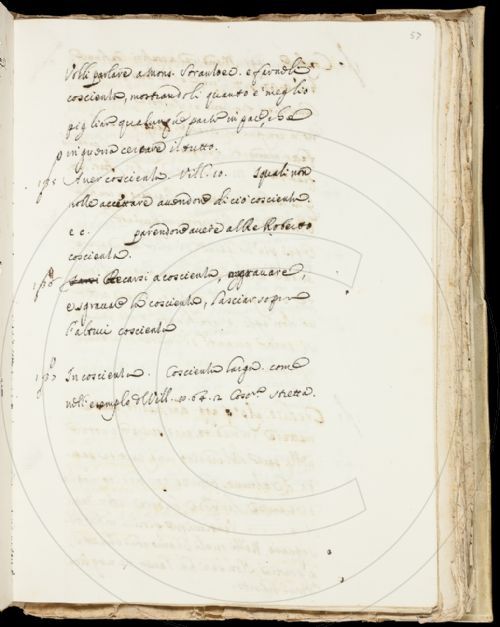 57
Volli parlare a Mons. e farneli
coscienta, mostrandoli quanto è meglio
pigliare qualunque parte in pace, che
in guerra cercare il tutto.
Aver coscienta. Vill. 10. i quali non
volle accettare avendone di ciò coscienta.
e c. parendone avere al Re Roberto
coscienta.
Recarsi a coscienta, aggravare,
e sgravare la coscienta, lasciar sopra
l'altrui coscienta
In coscienta. Coscienta larga. come
nell'esempio d Vill. 64. 12 stretta.